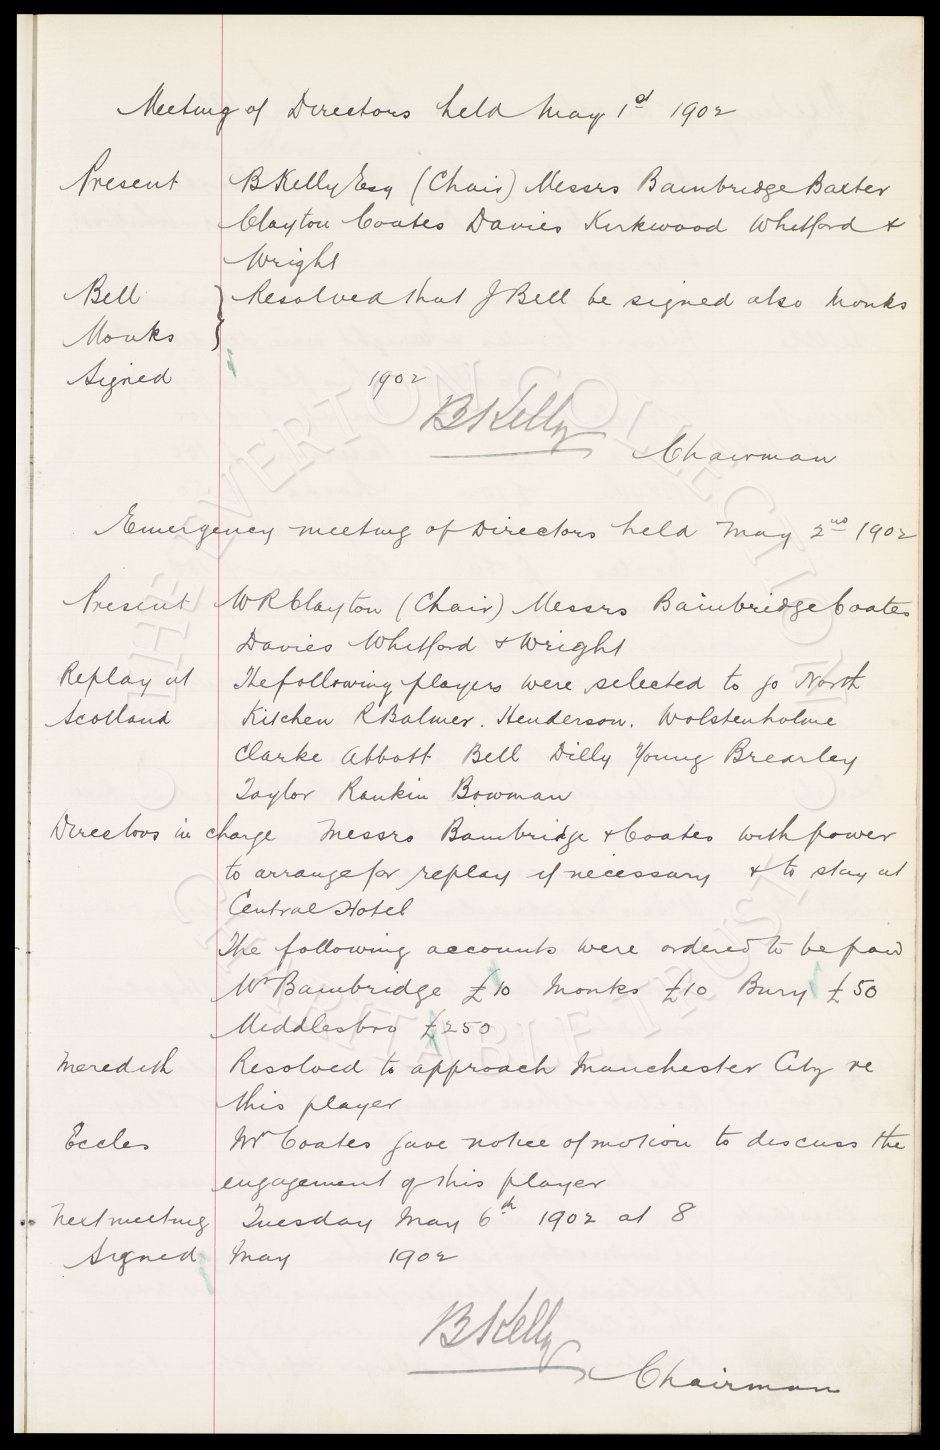 Meeting of Directors held May 1st 1902
Present B Kelly Esq (Chair) Messrs Bambridge Baxter
Clayton Coates Davies Kirkwood Whitford &
Wright
Bell } Resolved that J Bell be signed also Monks
Monks
Signed 1902
B Kelly
Chairman
Emergency meeting of Directors held May 2nd 1902
Present W R Clayton (Chair) Messrs Bainbridge Coates
Davies Whitford & Wright
Replay at The following players were selected to go North
Scotland Kitchen R Balmer. Henderson. Wolstenholme
Clarke Abbott Bell Dilly Young Brearley
Taylor Rankin Bowman
Directors in charge Messrs Bambridge & Coates with power
to arrange for replay if necessary & to stay at
Central Hotel
The following accounts were ordered to be paid
Mr Bambridge £10 Monks £10 Bury £50
Middlesbro £250
Meredith Resolved to approach Manchester City re
this player
Eccles Mr Coates gave notice of motion to discuss the
engagement of this player
Next meeting Tuesday May 6th 1902 at 8
Signed May 1902
B Kelly
Chairman
THE EVERTON COLLECTION
CHARITABLE TRUST